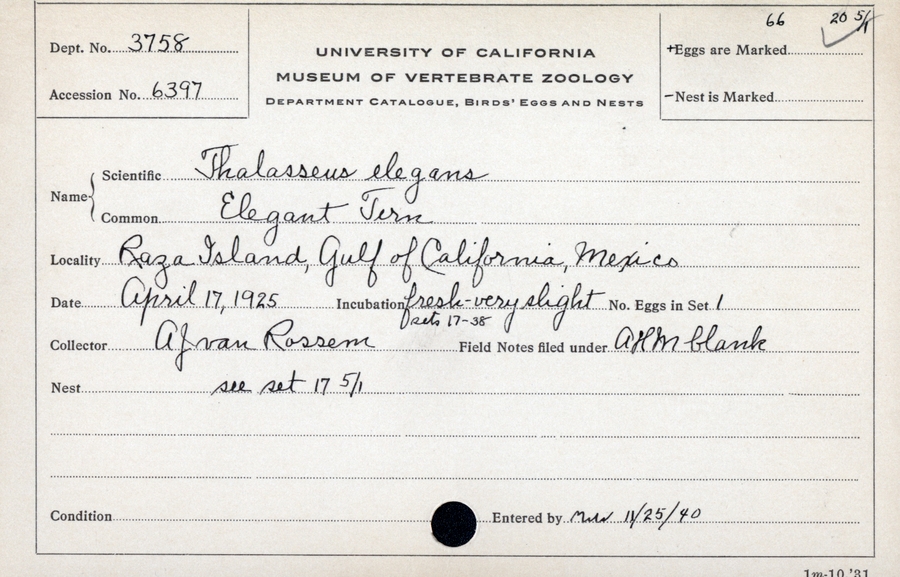 66 20 5/1
Dept. No. 3758
UNIVERSITY OF CALIFORNIA
+Eggs are Marked
MUSEUM OF VERTEBRATE ZOOLOGY
Accession No. 6397
DEPARTMENT CATALOGUE, BIRDS' EGGS AND NESTS
-Nest is Marked
Name
Scientific Thalasseus elegans
Common Elegant Tern
Locality Raza Island, Gulf of California, Mexico
Date April 17, 1925 Incubation fresh-very slight No. Eggs in Set 1
sets 17-38
Collector AJ van Rossem Field Notes filed under AHM blank
Nest see set 17 5/1
Condition Entered by 11/25/40
1m-10,'31